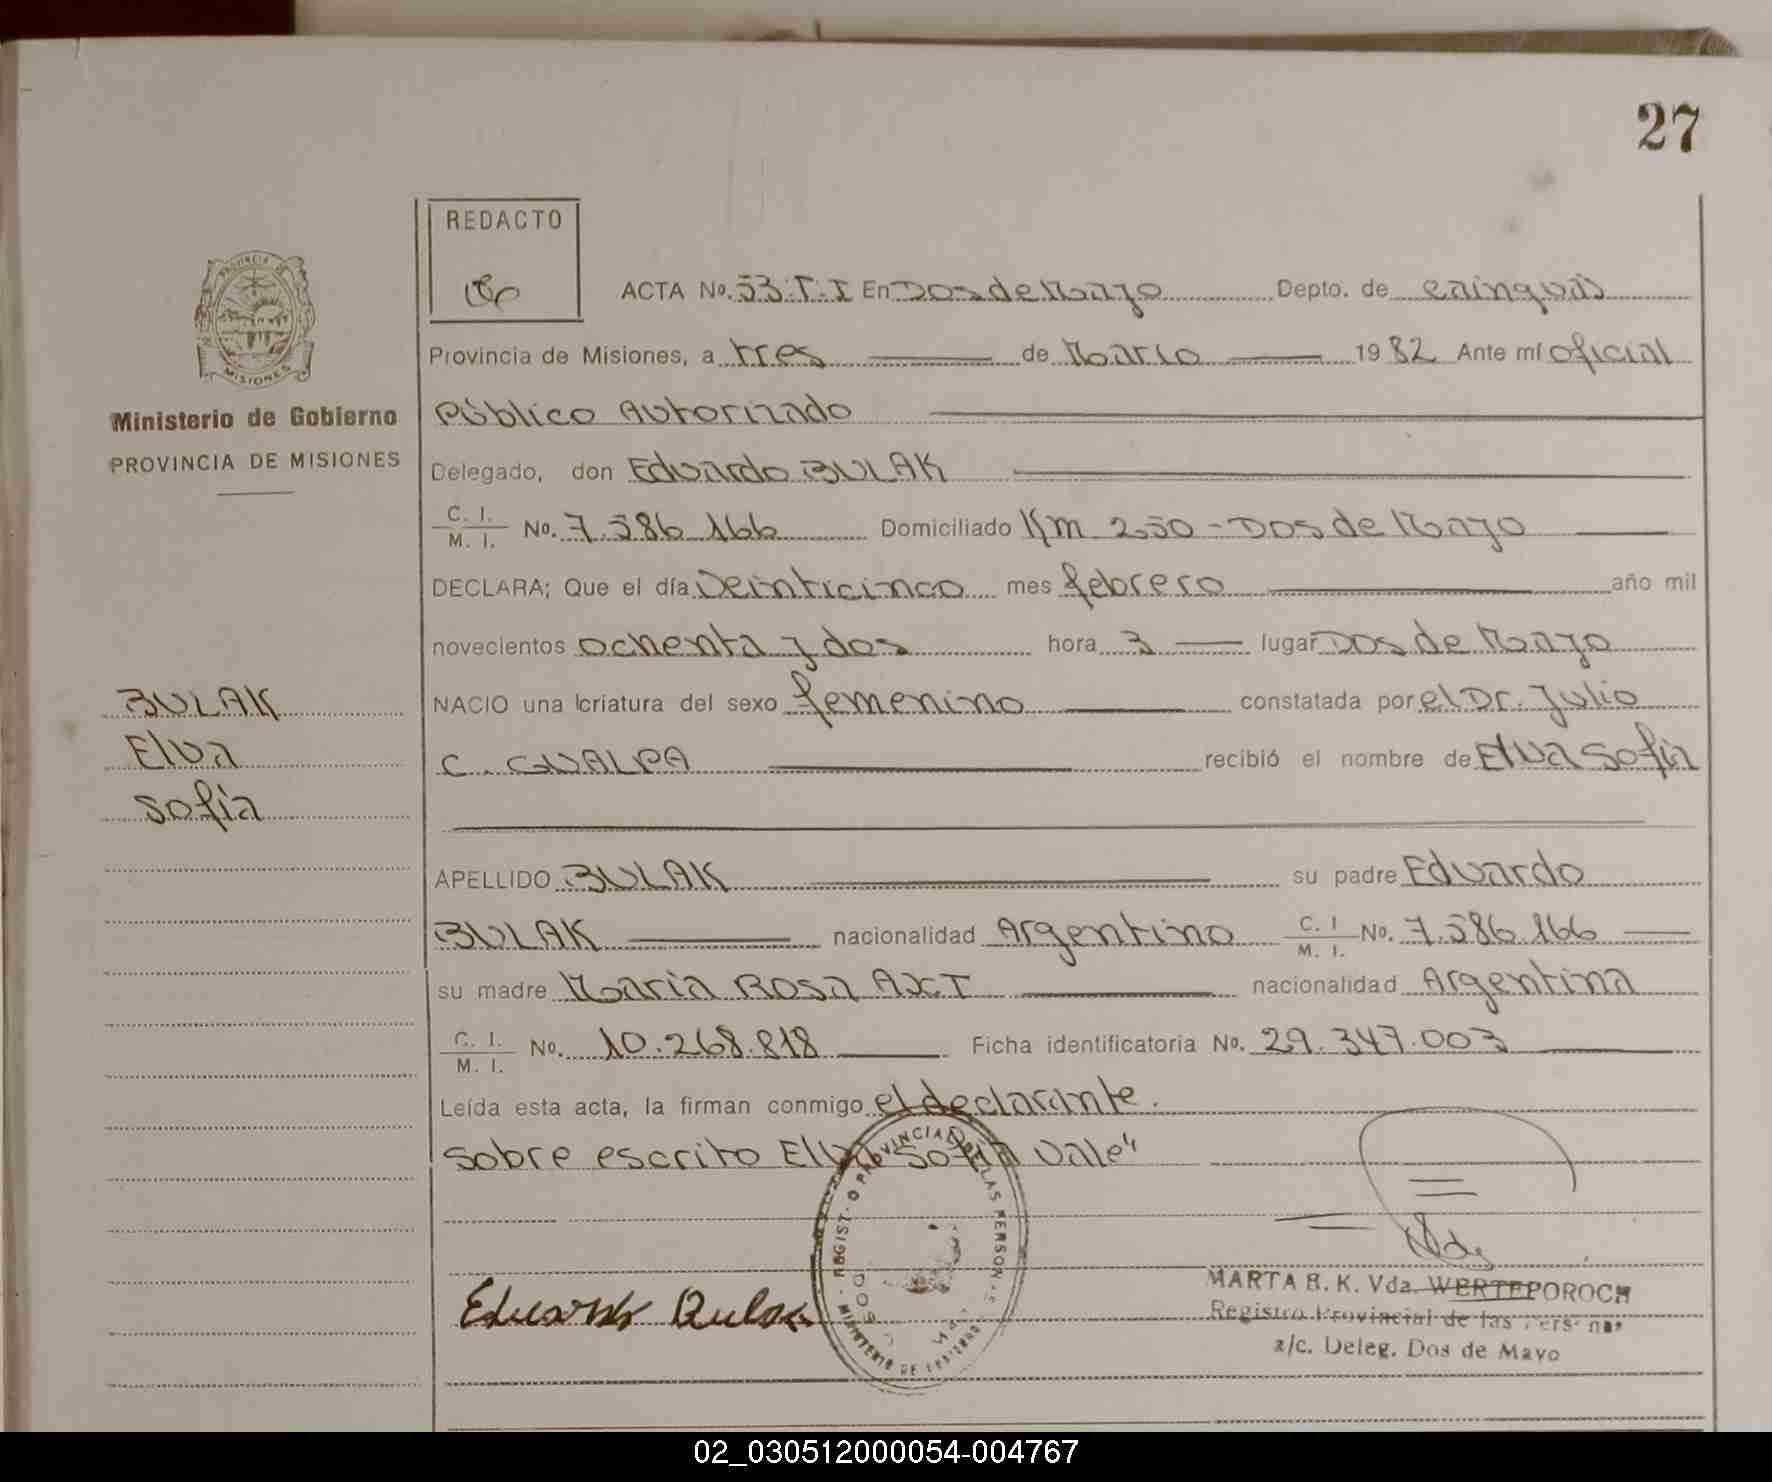 27
REDACTO
PROVINCIA DE
MISIONES
Ministerio de Gobierno
PROVINCIA DE MISIONES
ACTA No. 53.T.I En Dos de Mayo Depto. de Cainguás
Provincia de Misiones, a tres de Marzo 1982 Ante mí oficial
Público Autorizado
Delegado, don Eduardo BULAK
C. I. M. I. No. 7.586.166 Domiciliado Km 250 - Dos de Mayo
DECLARA; Que el día Veinticinco mes febrero año mil
novecientos ochenta y dos hora 3 lugar Dos de Mayo
NACIO una criatura del sexo femenino constatada por el Dr. Julio
C. GUALPA recibió el nombre de Elva Sofía
BULAK
Elva
Sofía
APELLIDO BULAK su padre Eduardo
BULAK nacionalidad Argentino C. I. M. I. No. 7.586.166
su madre María Rosa AXT nacionalidad Argentina
C. I. M. I. No. 10.268.818 Ficha identificatoria No. 29.347.003
Leída esta acta, la firman conmigo el declarante.
Sobre escrito Elva Sofía Vale"
Eduardo Bulak
MARTA B. K. Vda. WERTEPOROCH
Registro Provincial de las
a/c. Deleg. Dos de Mayo
02_030512000054-004767